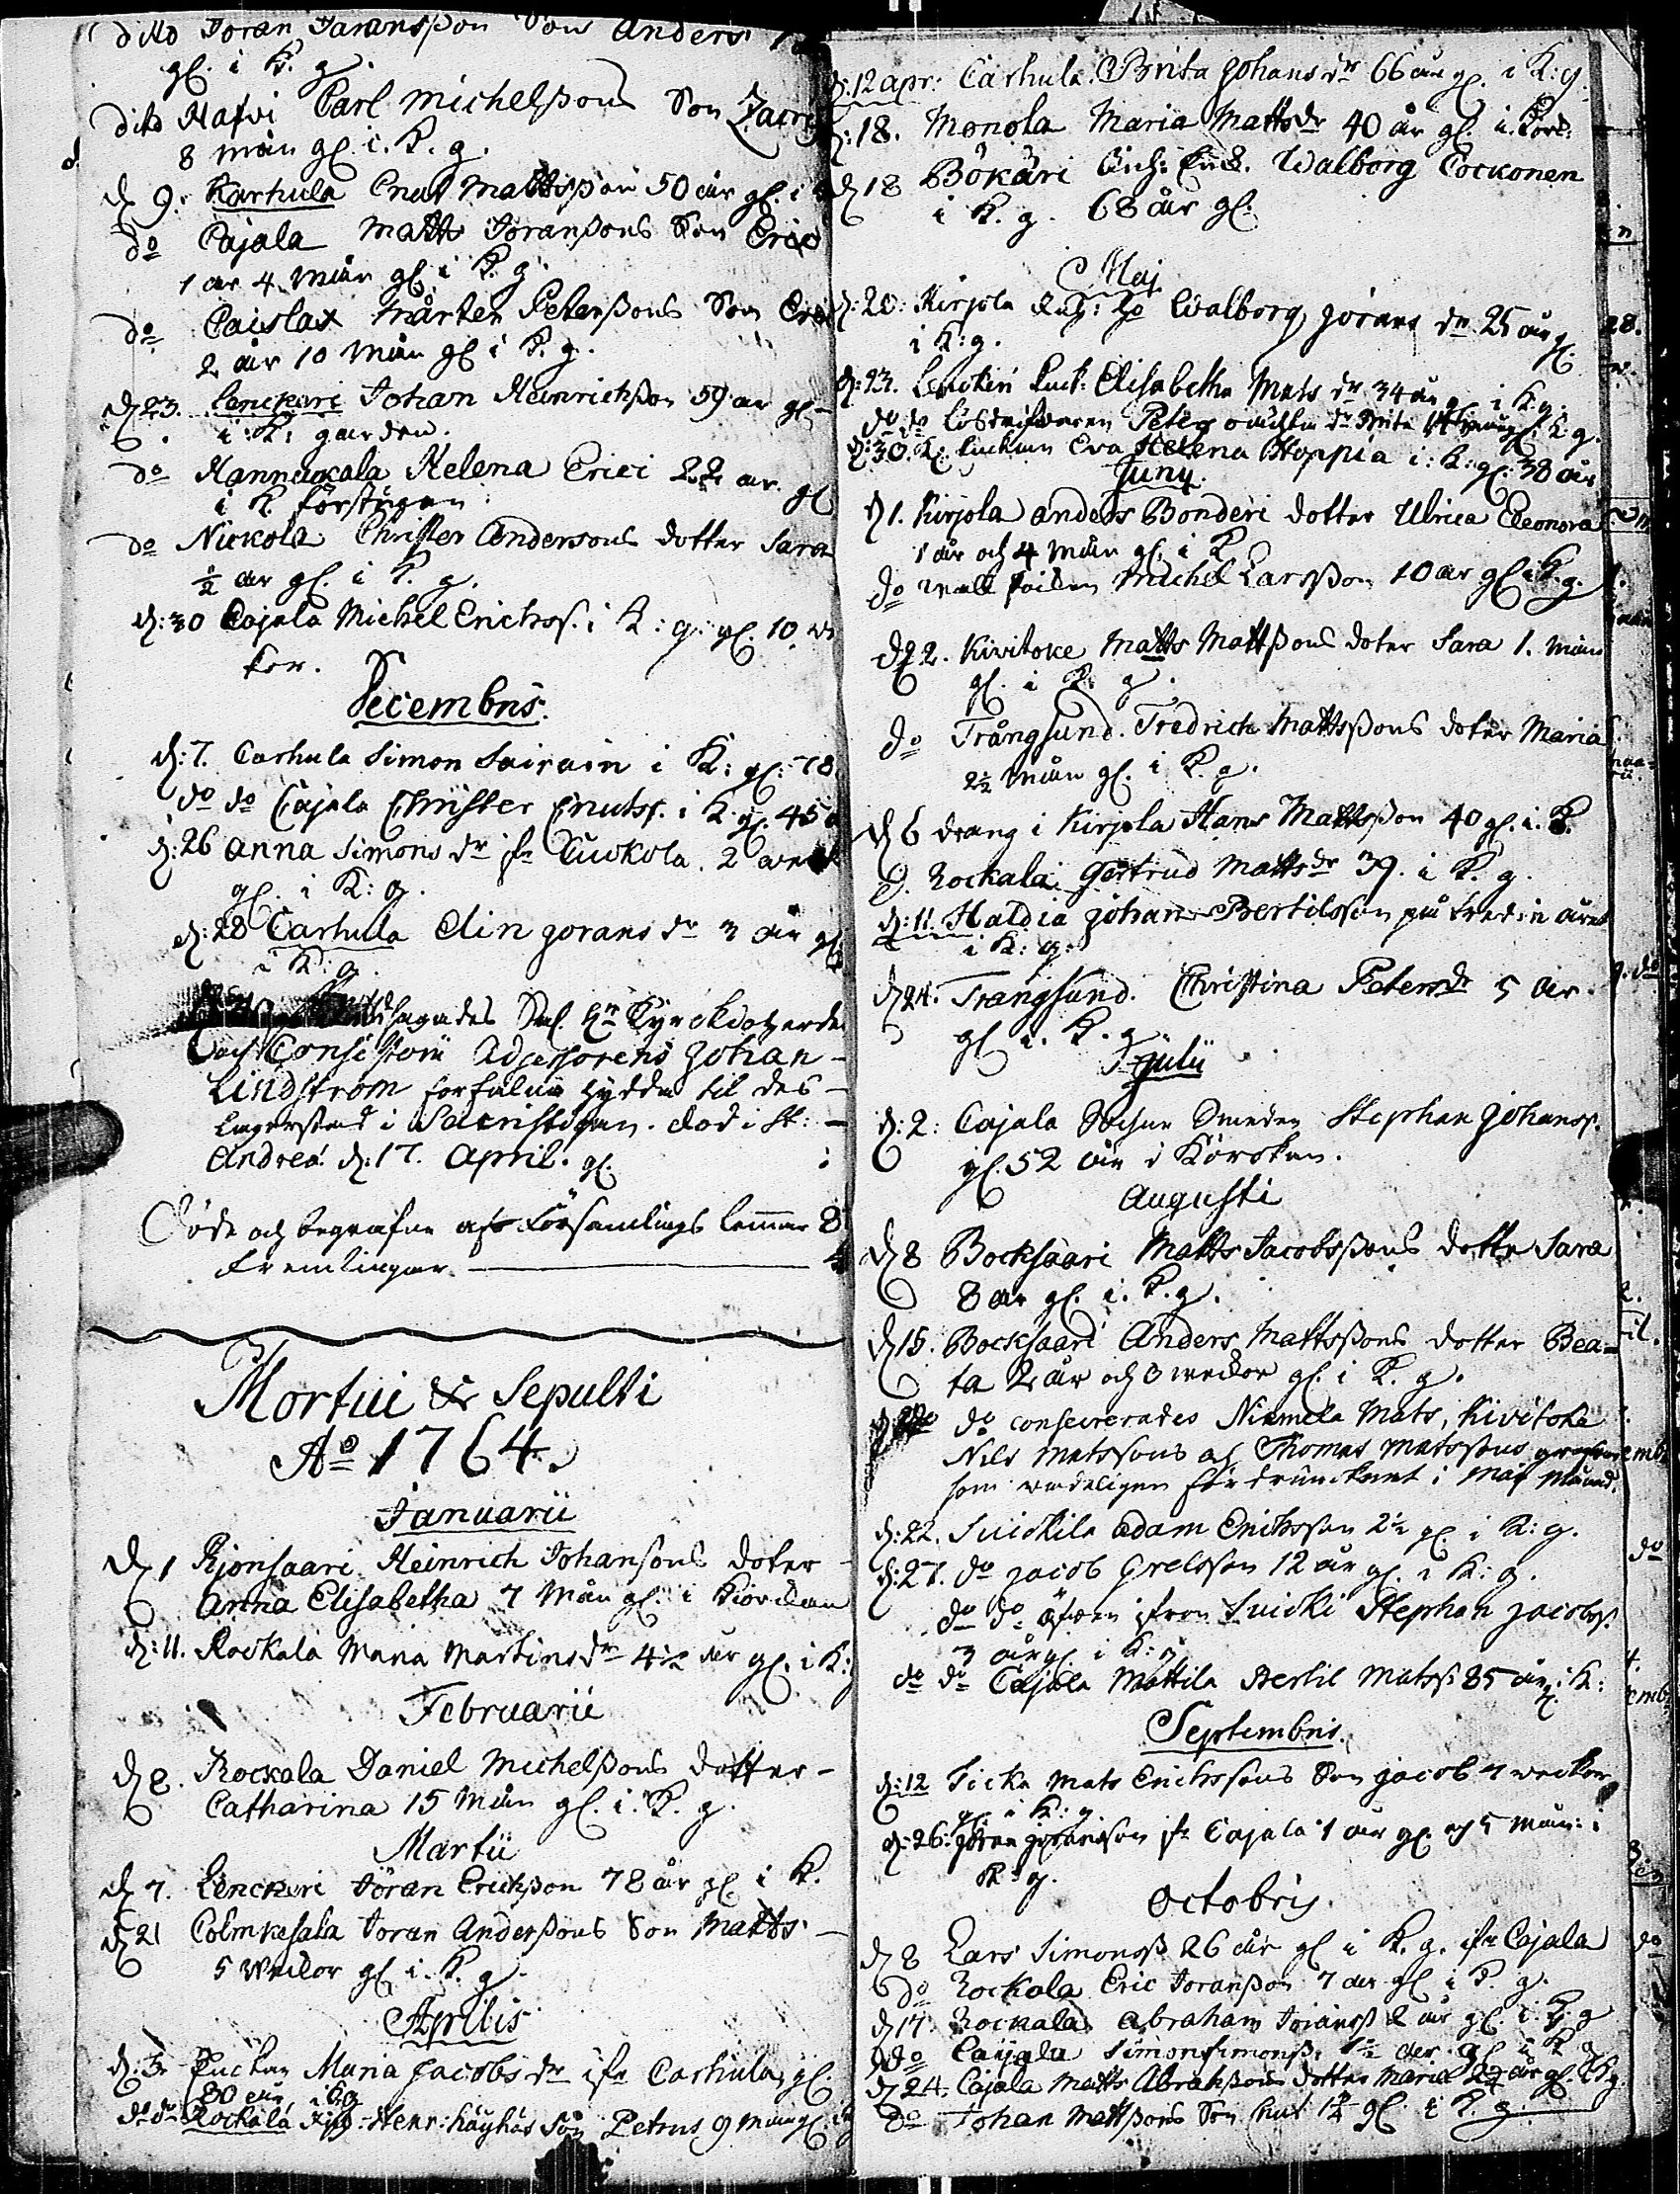 dito Joran Joranßon Son Anders
gl. i K. g.
dito Nafvi Carl Michelßons Son Zacri
8 mån gl. i. K. g.
d 9. Karhula Cnut Mattsßon 50 år gl. i
do Cajala Matts Joranßons Son Eric
1 ar 4 mån gl. i K. g.
do Caislax Mårten Peterßons Son Eric
2 år 10 mån gl i K. g.
d 23. Lenckeri Johan Heinrichßon 59 ar gl
i K: garden.
do Hannukala Helena Erici 22 ar gl
i K. förstugan
do Nickola Christer Andersons dotter Sara
½ ar gl. i K. g.
d: 30 Cajala Michel Erichss. i K: g: gl. 10. we
kor.
Decembris.
d: 7. Carhula Simon Sairain i K: gl: 78
do do Cajala Christer Cnutss. i K. gl. 45
d: 26 Anna Simons dr ifr Kuckola. 2 weck
gl. i K: g.
d: 28 Carhula Elin Jorans dr 3 år gl.
i K: g
Sal. Hr Kyrckoherde
och Consistorii Adsessorens Johan
Lindstrom forfalna hydda til des
lägerstad i Sacristigan. död i St:
Andreæ d: 17. April. gl.
Döde och begrafne af Församlings lemmar 8
fremlingar 4
Mortui & Sepulti
Ao 1764.
Januarii
d 1 Pionsaari Heinrich Johansons doter
Anna Elisabetha 7 mån gl. i Kiörckan
d: 11. Rockala Maria Martinsdr 4½ år gl. i K: g
Februarii
d 8. Rockala Daniel Michelßons dotter
Catharina 15 mån gl. i. K. g.
Martii
d 7. Lenckeri Jöran Erickßon 78 år gl i K.
d 21 Colmkesala Joran Anderßons Son Matts
5 veckor gl i. K. g.
Aprilis
d: 3. Enckan Maria Jacobs dr ifr Carhula, gl.
80 år, i Kg
do do Rockala Henr: Häyhäs Son Petrus 9 mån gl. Kg
d: 12 apr: Carhula Brita Johans dr 66 år gl. i K: g.
d: 18. Monola Maria Matts dr 40 år gl. i. Körk.
d 18 Bökäri Enck. Walborg Cockonen
i K. g. 68 år gl.
Maj
d: 20: Kirjola Walborg Jörans dr 25 år gl.
i K: g.
d: 23. Lenckeri Enck: Elisabetha Mats dr 34 år gl i K. g.
do do Peters Brita K. g.
d: 30. Enckan Eva Helena Hoppia i: K: gl: 38 år
Juny
d 1. Kirjola Anders Bonderi dotter Ulrica Eleonora
1 år och 4 mån gl. i K
do Michel Larsßon 10 år gl i K. g.
d 22. Kivitoke Matts Mattßons doter Sara 1. mån
gl. i K. g.
do Trångsund. Fredrich Mattsßons doter Maria
2½ mån gl. i K. g.
d 6 drang i Kirjola Hans Mattsßon 40 gl. i. K.
d. Rockala Gertrud Matts dr 39. i K. g.
d: 11. Haldia Johan Bertilsson på tredie året
i K: g.
d 24. Trangsund. Christina Peters dr 5 år.
gl i. K. g
Julii
d: 2: Cajala Sochne Smeden Stephan Johanss.
gl. 52 år i Körckan.
Augusti
d 8 Bocksaari Matts Jacobsßons dotter Sara
8 ar gl. i. K. g.
d 15. Bocksaari Anders Mattsßons dotter Bea-
ta 2 år och 3 weckor gl. i K. g.
do consecrerades Niemela Mats, Kivitoka
Nils Matssons och Thomas Matssons grafvar
som vådeligen fördrunknat i Maj Månad.
d: 22. Suickila Adam Erichsson 2½ gl. i K: g.
d: 27. do Jacob Grelsson 12 år gl. i K: g.
do do äfven ifron Suicki Stephan Jacobss.
3 år gl. i K: g
do do Cajala Mattila Bertil Matss: 85 år gl. i K:
Septembris.
d: 12 Ficka Mats Erichssons Son Jacob 7 weckor
gl. i K: g.
d: 26: Jöran Jöransson ifr Cajala 1 år gl. och 5 mån: i
K: g.
Octobris.
d 8 Lars Simonsß 26 år gl i K. g. ifr Cajala
do Rockala Eric Joranßon 7 ar gl i K. g.
d 17. Rockala Abraham Joransß 2 år gl. i. K. g
do Caijala Simon Simonß. 1½ ar gl i K g
d 24. Cajala Matts Abrahßons dotter Maria 2¼ år gl. K g.
do Johan Mattßons Son Cnut 1¾ gl. i K. g.